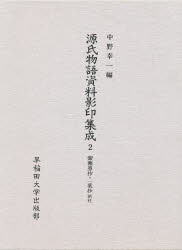 中野幸一編
源氏物語資料影印集成
2
早稲田大学出版部